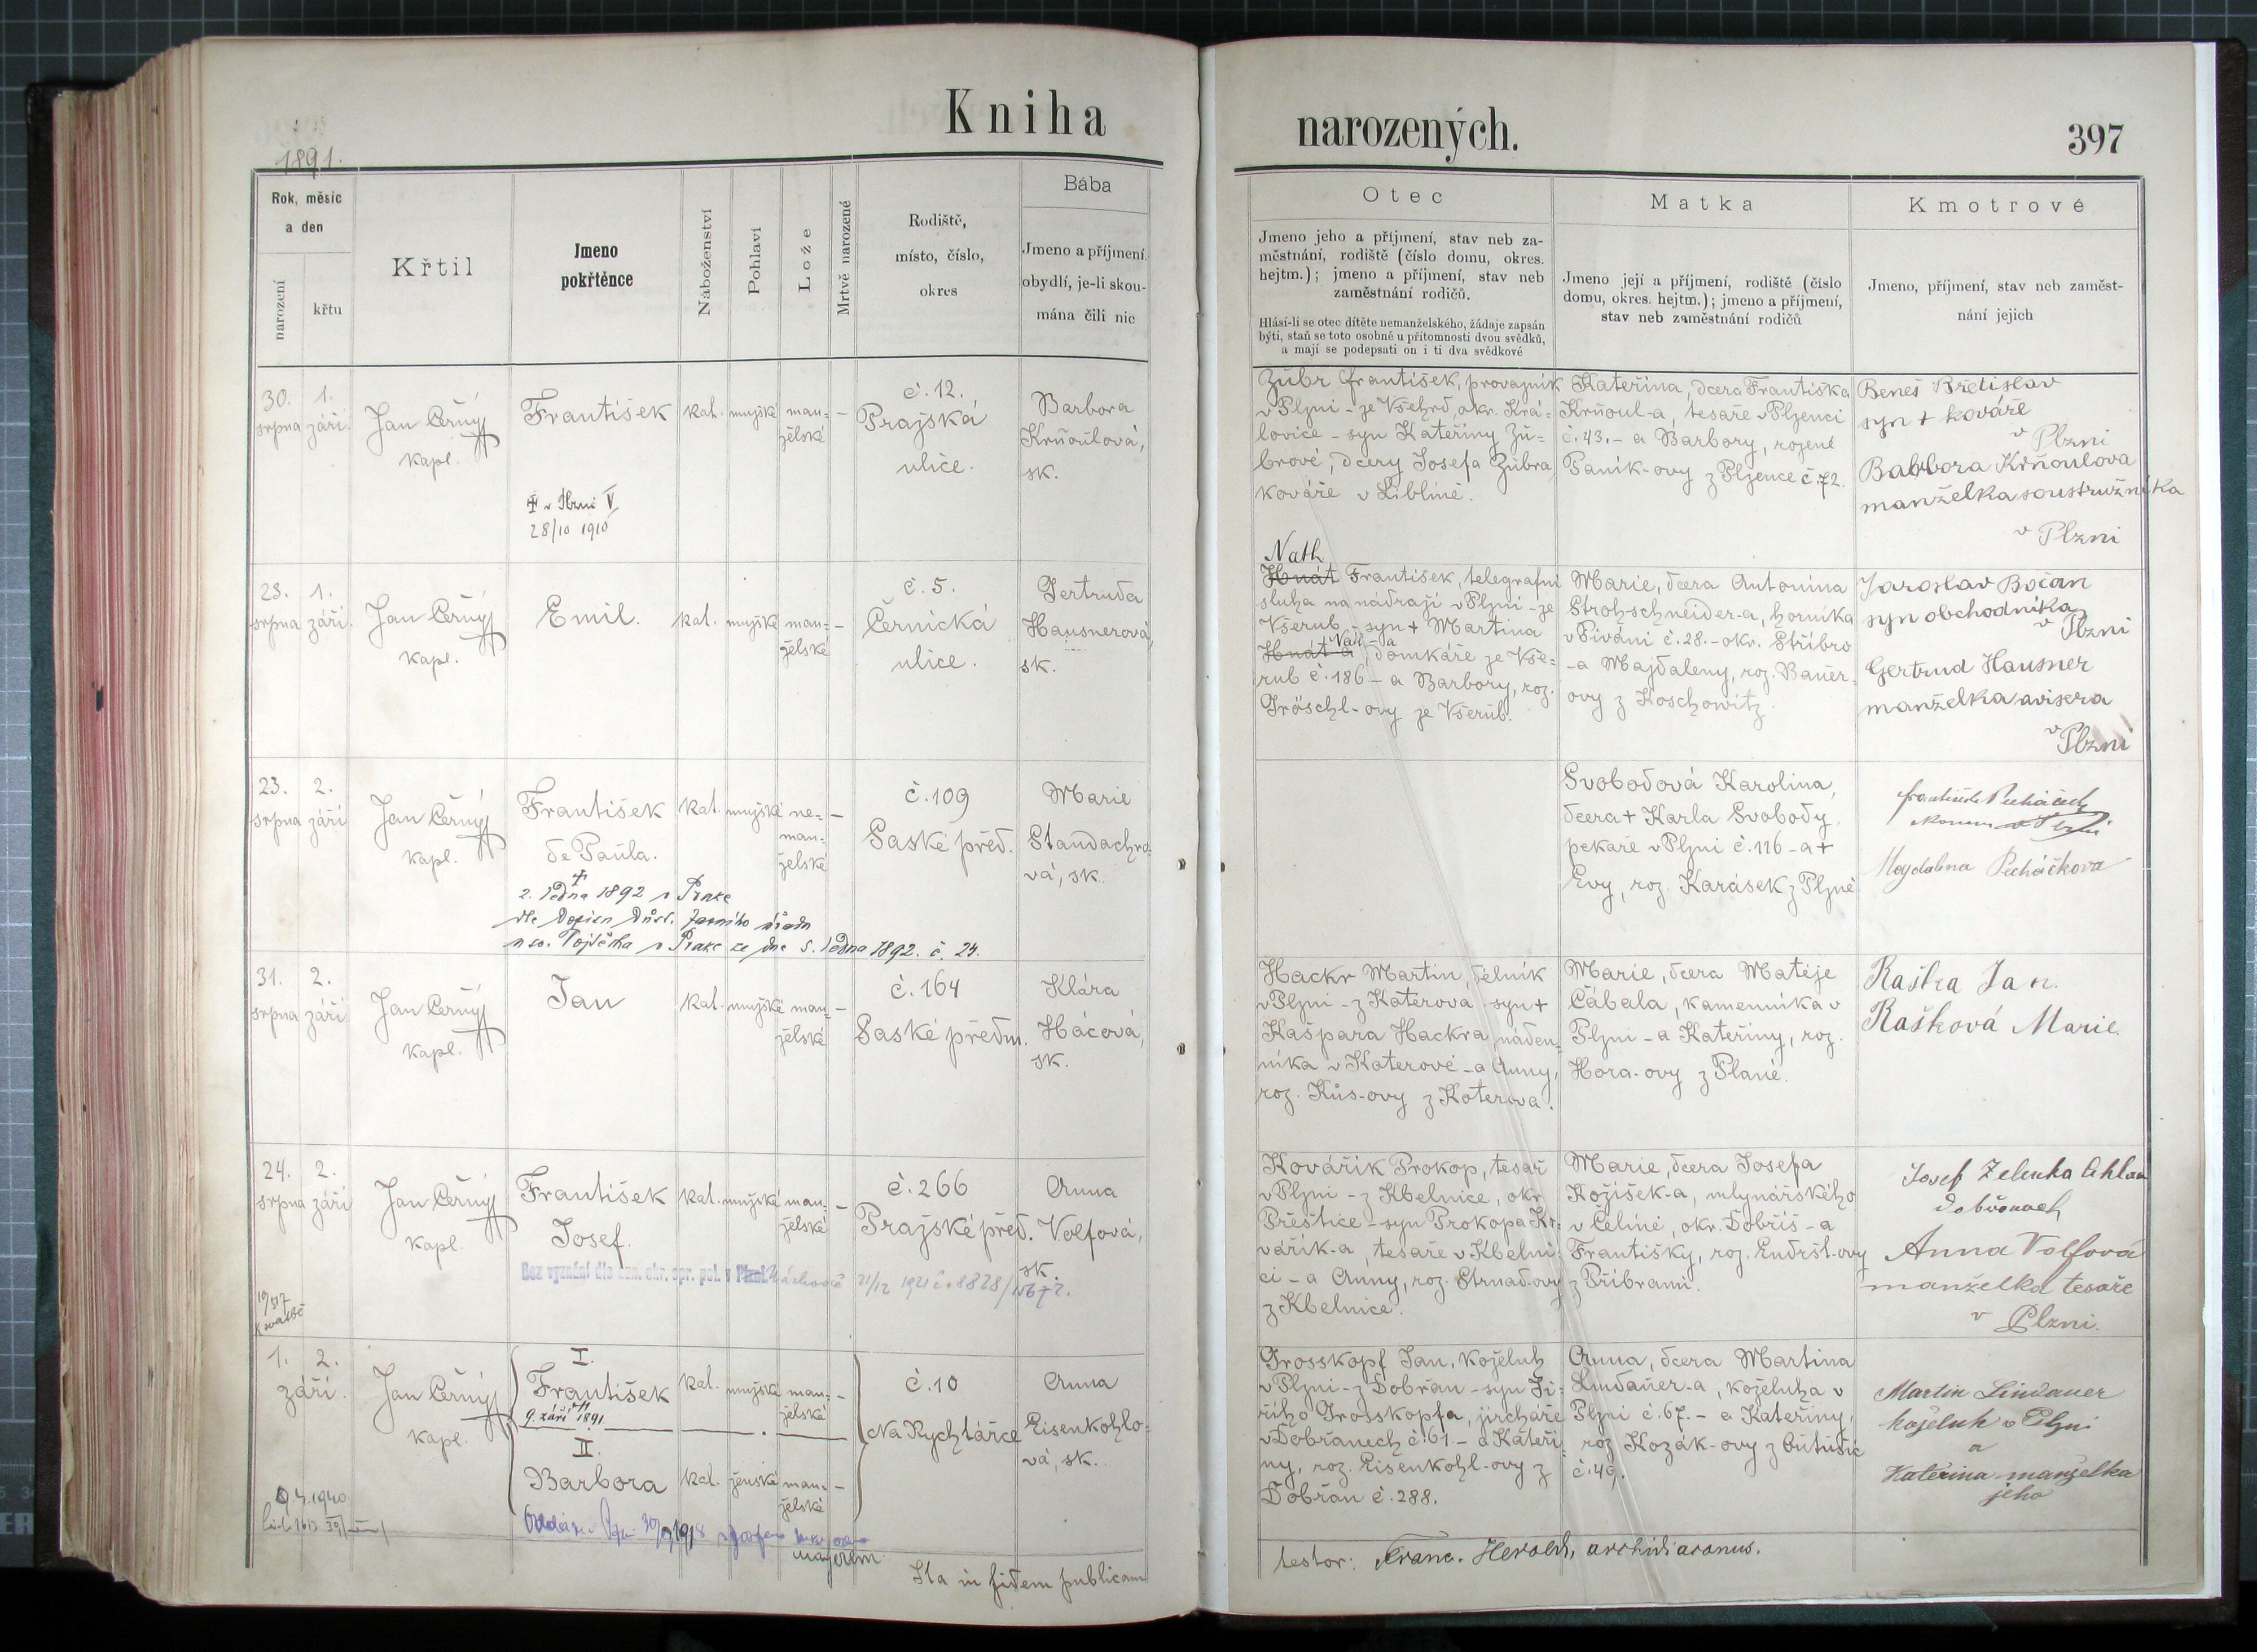 Kniha
1891.
Rok, měsíc
a den
narození
křtu
Křtil
Jmeno
pokřtěnce
Náboženství
Pohlaví
Lože
Mrtvě narozené
Rodiště,
místo, číslo,
okres
Bába
Jmeno a příjmení,
obydlí, je-li skou-
mána čili nic
30. srpna
1. září.
Jan Černý
kapl.
František
kat.
mužské
man=
želské
–
č. 12.
Pražská
ulice.
Barbora
Krňoulová,
sk.
28/10 1910
28. srpna
1. září.
Jan Černý
kapl.
Emil.
kat.
mužské
man=
želské
–
č. 5.
Černická
ulice.
Gertruda
Hausnerová,
sk.
23. srpna
2. září
Jan Černý
kapl.
František
de Paula.
kat.
mužské
ne=
man=
želské
–
č. 109
Saské před.
Marie
Standachro-
vá, sk.
2. ledna 1892 v Praze
v Praze ze dne 5. ledna 1892. č. 24.
31. srpna
2. září
Jan Černý
kapl.
Jan
kat.
mužské
man=
želské
–
č. 164
Saské předm.
Klára
Hácová,
sk.
24. srpna
2. září
Jan Černý
kapl.
František
Josef.
kat.
mužské
man=
želské
–
č. 266
Pražské před.
Anna
Volfová,
sk.
Bez vyznání dle
21/12 1921 č. 8828/
1. 2.
září.
Jan Černý
kapl.
I.
František
9. září 1891
kat.
mužské
man=
želské
–
II.
Barbora
kat.
ženské
man=
želské
–
č. 10
Na Rychtářce
Anna
Eisenkohlo=
vá, sk.
9.4.1940
Ita in fidem publicam
narozených.
397
Otec
Jmeno jeho a příjmení, stav neb za-
městnání, rodiště (číslo domu, okres.
hejtm.); jmeno a příjmení, stav neb
zaměstnání rodičů.
Hlásí-li se otec dítěte nemanželského, žádaje zapsán
býti, staň se toto osobně u přítomnosti dvou svědků,
a mají se podepsati on i ti dva svědkové
Matka
Jmeno její a příjmení, rodiště (číslo
domu, okres. hejtm.); jmeno a příjmení,
stav neb zaměstnání rodičů
Kmotrové
Jmeno, příjmení, stav neb zaměst-
nání jejich
Zubr František, provazník
v Plzni – ze Všehrd, okr. Krá=
lovice – syn Kateřiny Zu=
brové, dcery Josefa Zubra
kováře v Liblíně.
Kateřina, dcera Františka
Krňoul-a, tesaře v Plzenci
č. 43. – a Barbory, rozené
Paník-ovy z Plzence č. 72.
Beneš Břetislav
syn + kováře
v Plzni
Barbora Krňoulova
manželka soustružníka
v Plzni
Nath
Hnát František, telegrafní
sluha na nádraží v Plzni – ze
Všerub – syn + Martina
Nath-a
Hnát-a, domkáře ze Vše=
rub č. 186 – a Barbory, roz.
Gröschl-ovy ze Všerub.
Marie, dcera Antonína
Strohschneider-a, horníka
v Pivani č. 28. – okr. Stříbro
– a Majdaleny, roz. Bauer=
ovy z Koschowitz.
Jaroslav Bočan
syn obchodníka
v Plzni
Gertrud Hausner
manželka avisera
v Plzni
Svobodová Karolina,
dcera + Karla Svobody
pekaře v Plzni č. 116 – a +
Evy, roz. Karásek z Plzně
František Pecháček
Magdalena Pecháčkova
Hackr Martin, dělník
v Plzni – z Katerova – syn +
Kašpara Hackra náden=
níka v Katerově – a Anny,
roz. Kůs-ovy z Koterova.
Marie, dcera Matěje
Čábala, kamenníka v
Plzni – a Kateřiny, roz.
Hora-ovy z Plané.
Raška Jan.
Rašková Marie.
Kovářík Prokop, tesař
v Plzni – z Kbelnice, okr.
Přeštice – syn Prokopa Ko=
vářík-a, tesaře v Kbelni=
ci – a Anny, roz. Strnad-ovy
z Kbelnice.
Marie, dcera Josefa
Kožíšek-a, mlynářského
v Čelíně, okr. Dobříš – a
Františky, roz. Endršt-ovy
z Příbrami.
Josef Zelenka
Anna Volfová
manželka tesaře
v Plzni.
Grosskopf Jan, koželuh
v Plzni – z Dobřan – syn Ji=
řího Grosskopfa, jircháře
v Dobřanech č. 61 – a Kateři=
ny, roz. Eisenkohl-ovy z
Dobřan č. 288.
Anna, dcera Martina
Lindauer-a, koželuha v
Plzni č. 67. – a Kateřiny,
roz. Kozák-ovy z
č. 49.
Martin Lindauer
koželuh v Plzni
a
Kateřina manželka
jeho
testor: Franc. Herold, archidiaconus.